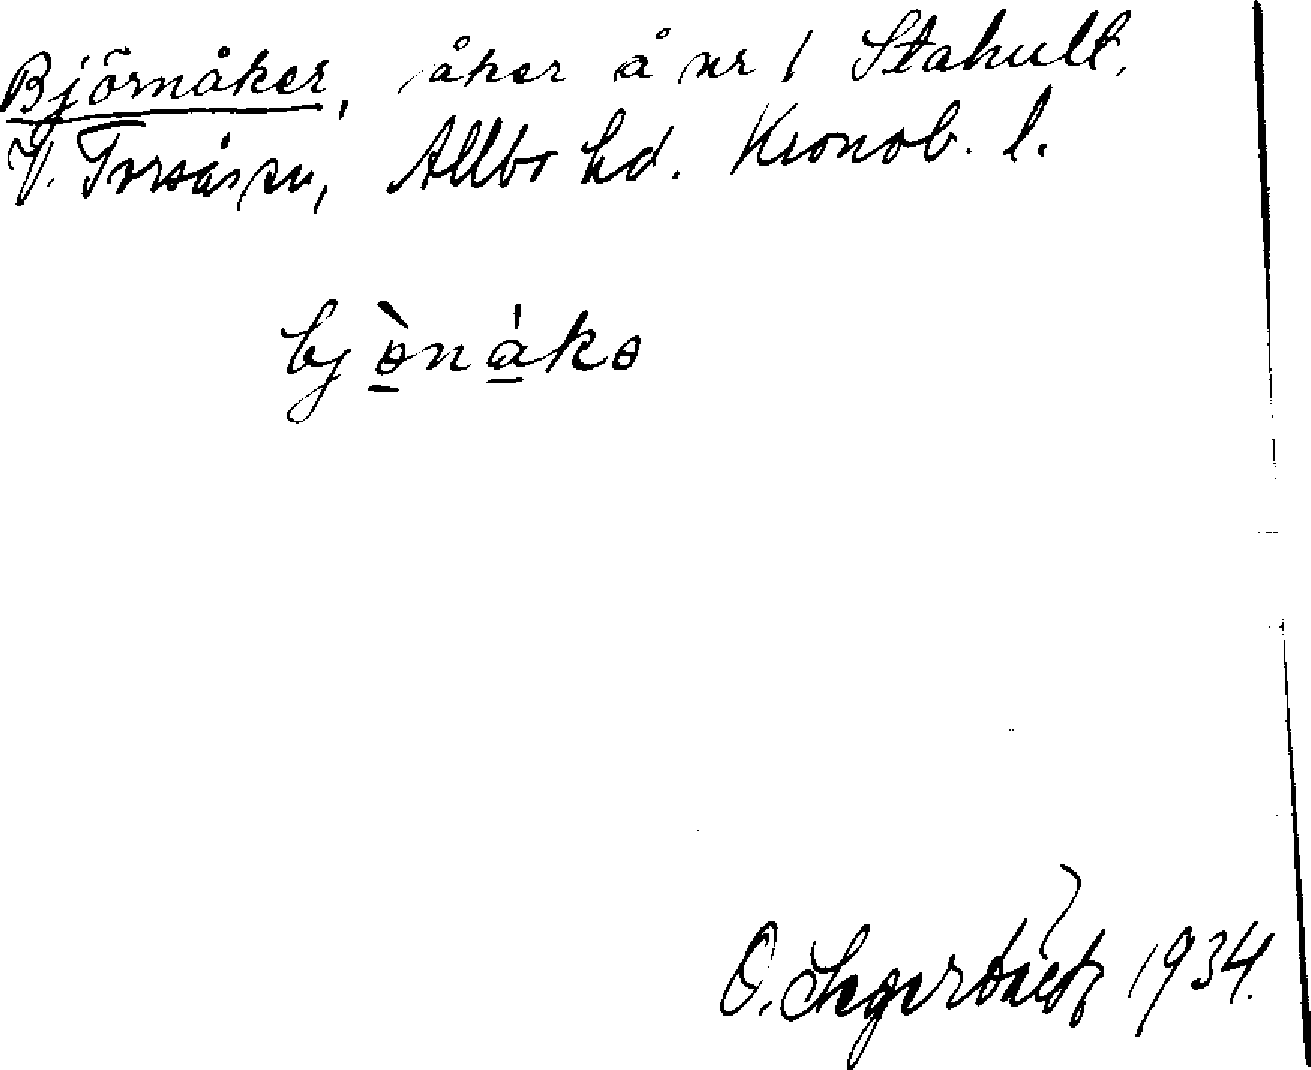 Björnåker, åker å nr 1 Stahult,
V. Torsås sn, Allbo hd. Kronob. l.
bjònáka
O. 1934.